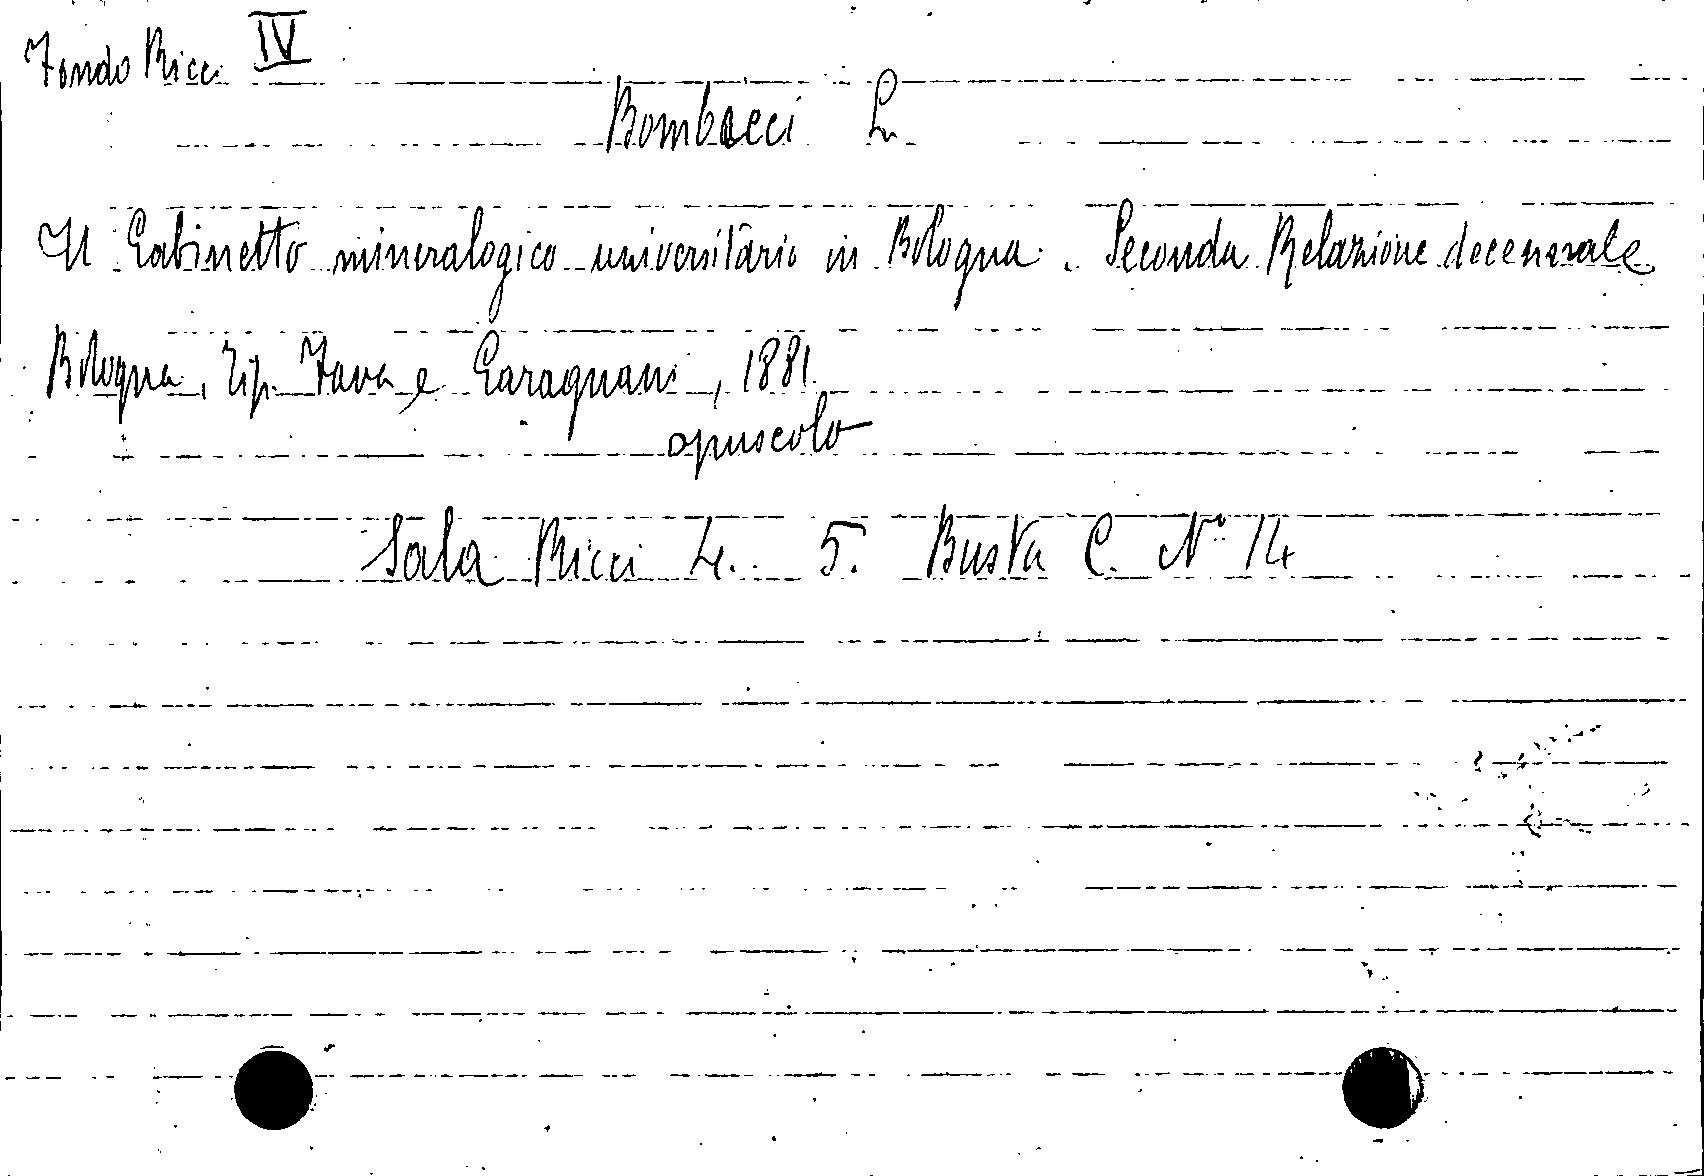 Fondo Ricci IV
Bombicci L.
Il Gabinetto mineralogico universitario in Bologna. Seconda Relazione decennale
Bologna, Tip. Fava e Garagnani, 1881.
opuscolo
Sala Ricci 4. 5. Busta C. N° 14